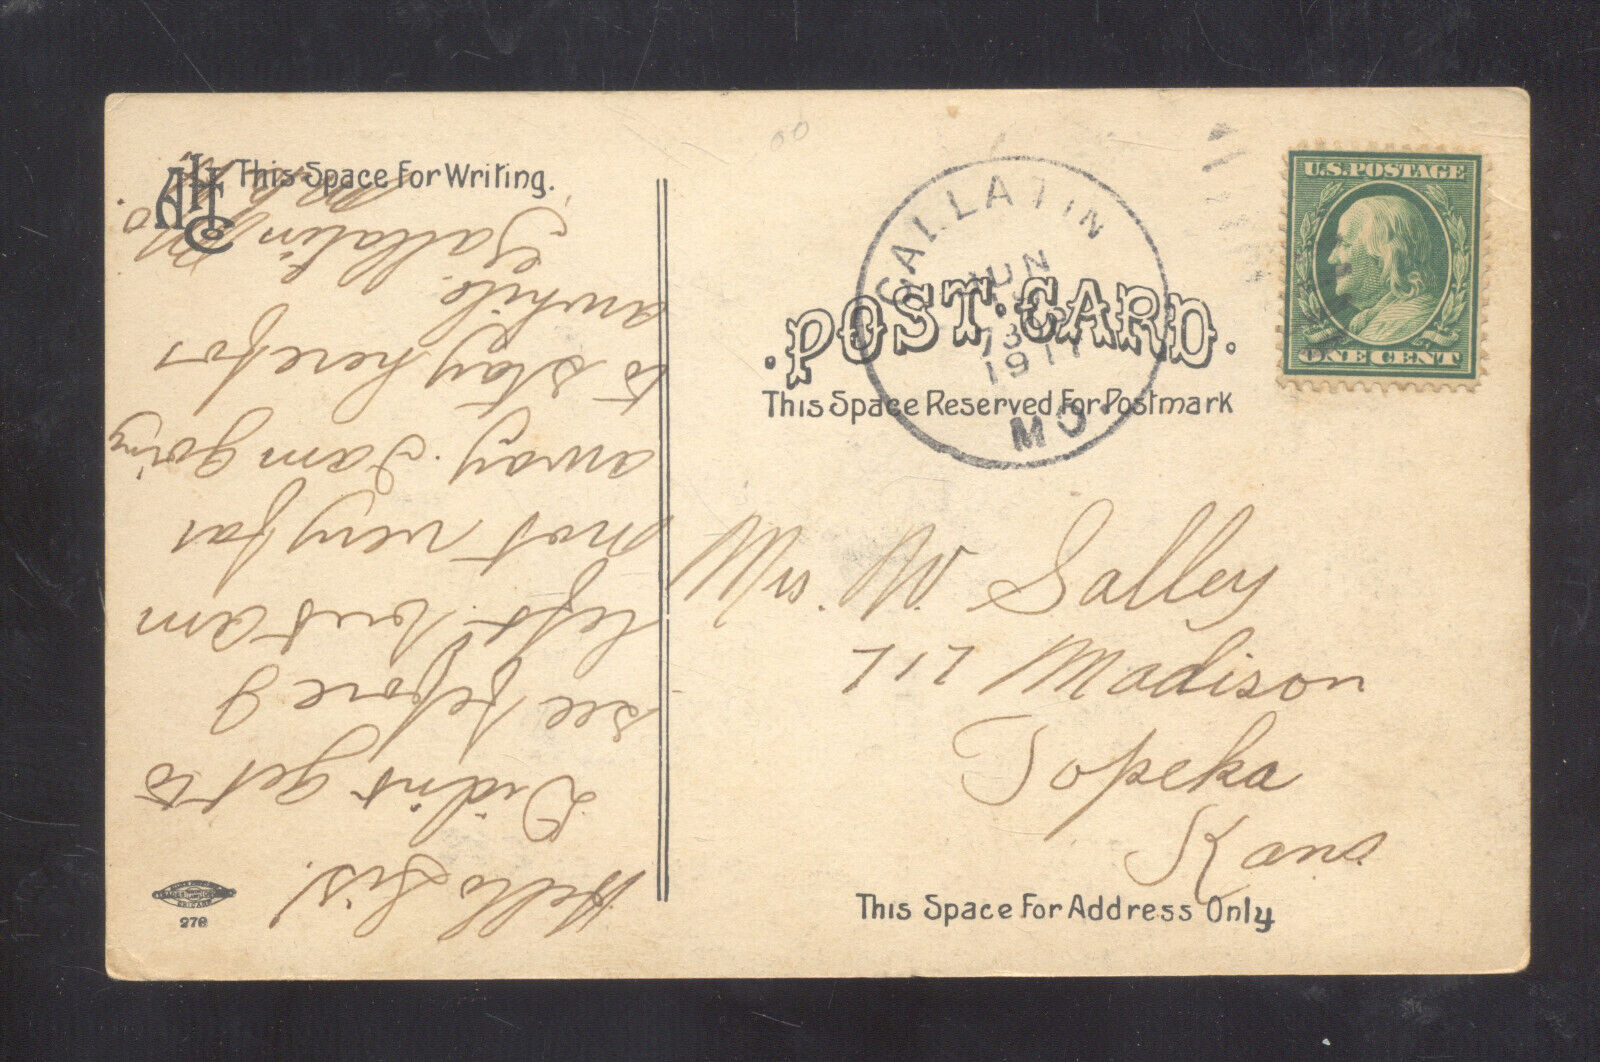 This Space For Writing.
AHCo
Hello Sis!
Didnt get to
see before I
left but am
not very far
away. I am going
to stay here for
awhile.
Gallatin
Mo.
278
GALLATIN
JUN
1911
MO.
POST CARD.
This Space Reserved For Postmark
U.S. POSTAGE
ONE CENT
Mrs. W. Salley
717 Madison
Topeka
Kans.
This Space For Address Only